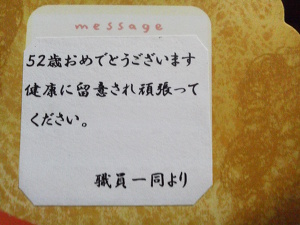 message
52歳おめでとうございます
健康に留意され頑張って
ください。
職員一同より